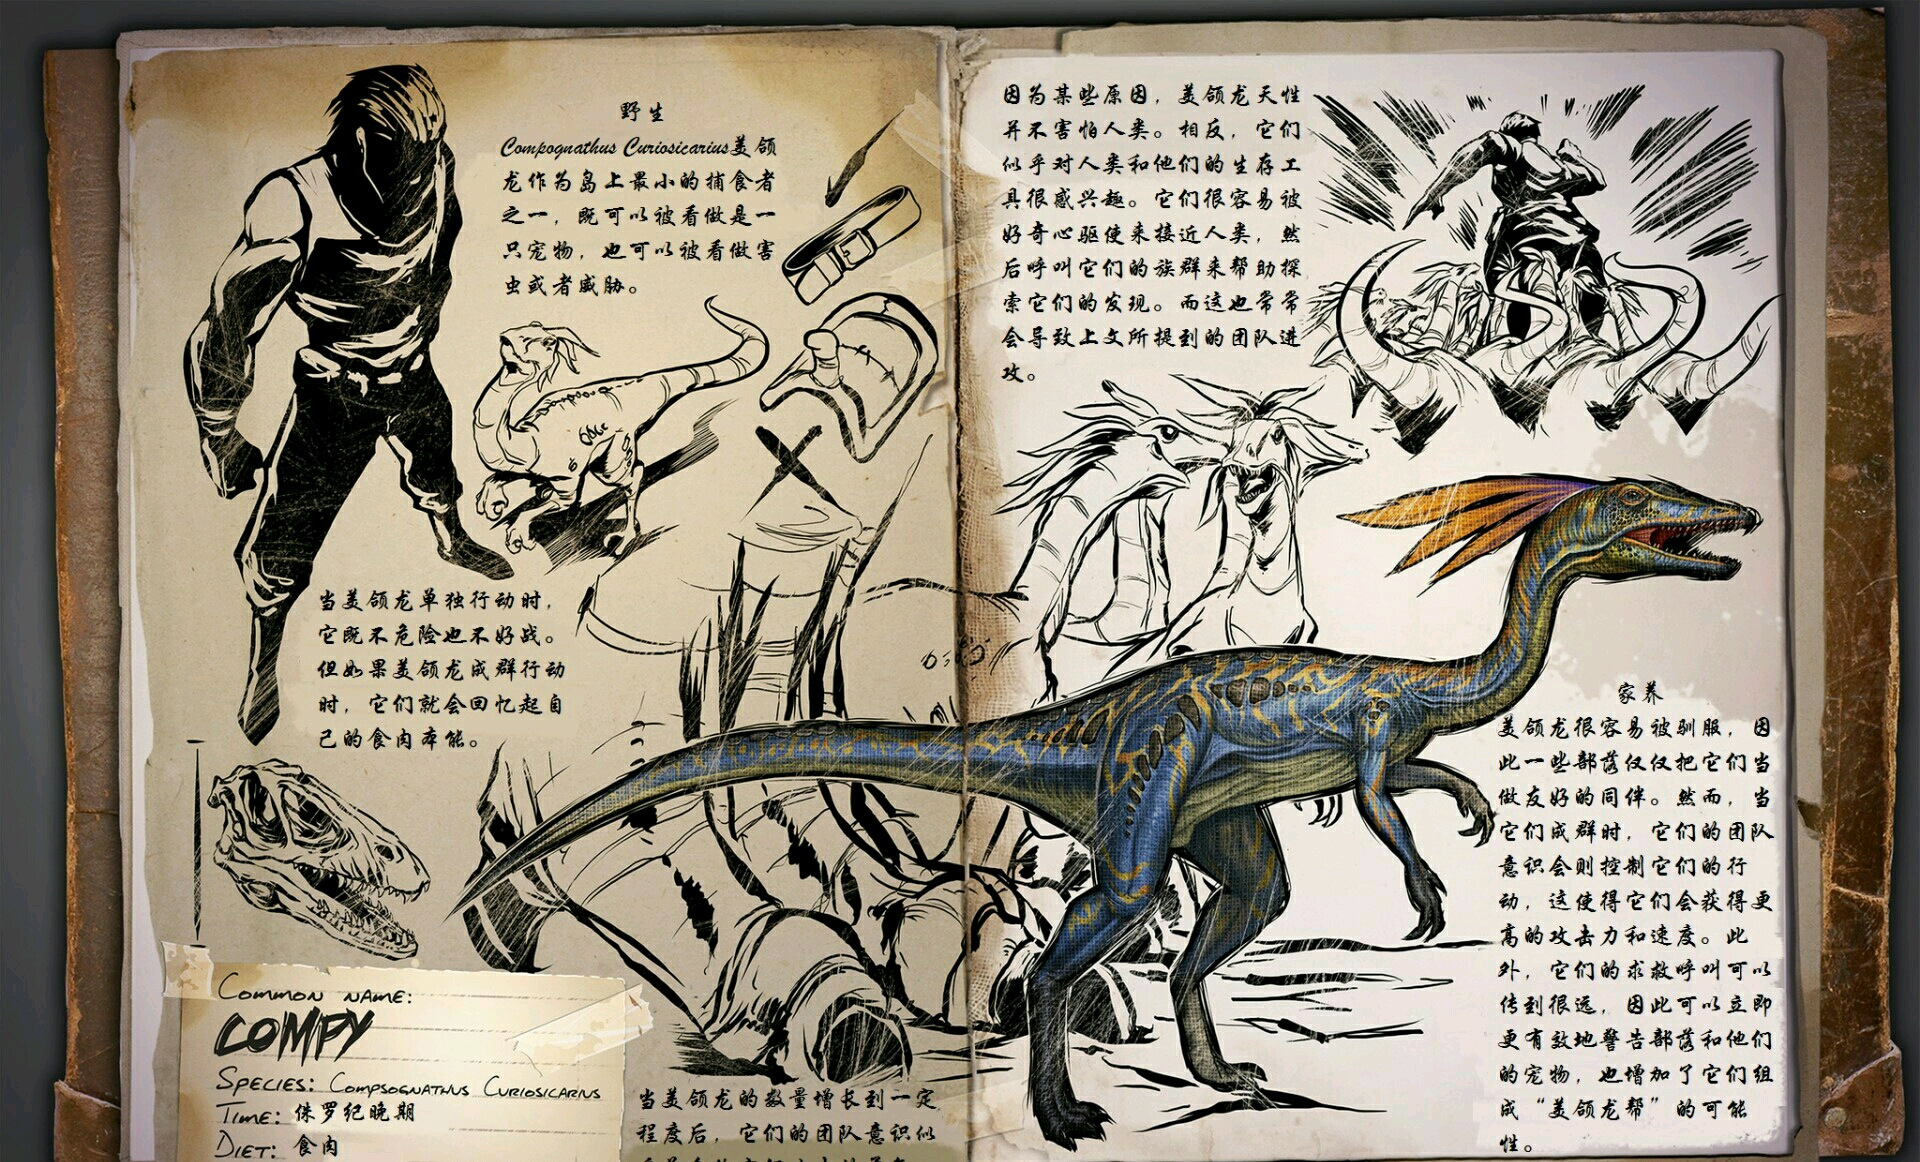 野生
Compognathus Curiosicarius美颌
龙作为岛上最小的捕食者
之一，既可以被看做是一
只宠物，也可以被看做害
虫或者威胁。
当美颌龙单独行动时，
它既不危险也不好战。
但如果美颌龙成群行动
时，它们就会回忆起自
己的食肉本能。
COMMON NAME:
COMPY
SPECIES: COMPSOGNATHUS CURIOSICARIUS
TIME: 侏罗纪晚期
DIET: 食肉
当美颌龙的数量增长到一定
程度后，它们的团队意识似
因为某些原因，美颌龙天性
并不害怕人类。相反，它们
似乎对人类和他们的生存工
具很感兴趣。它们很容易被
好奇心驱使来接近人类，然
后呼叫它们的族群来帮助探
索它们的发现。而这也常常
会导致上文所提到的团队进
攻。
家养
美颌龙很容易被驯服，因
此一些部落仅仅把它们当
做友好的同伴。然而，当
它们成群时，它们的团队
意识会则控制它们的行
动，这使得它们会获得更
高的攻击力和速度。此
外，它们的求救呼叫可以
传到很远，因此可以立即
更有效地警告部落和他们
的宠物，也增加了它们组
成“美颌龙帮”的可能
性。